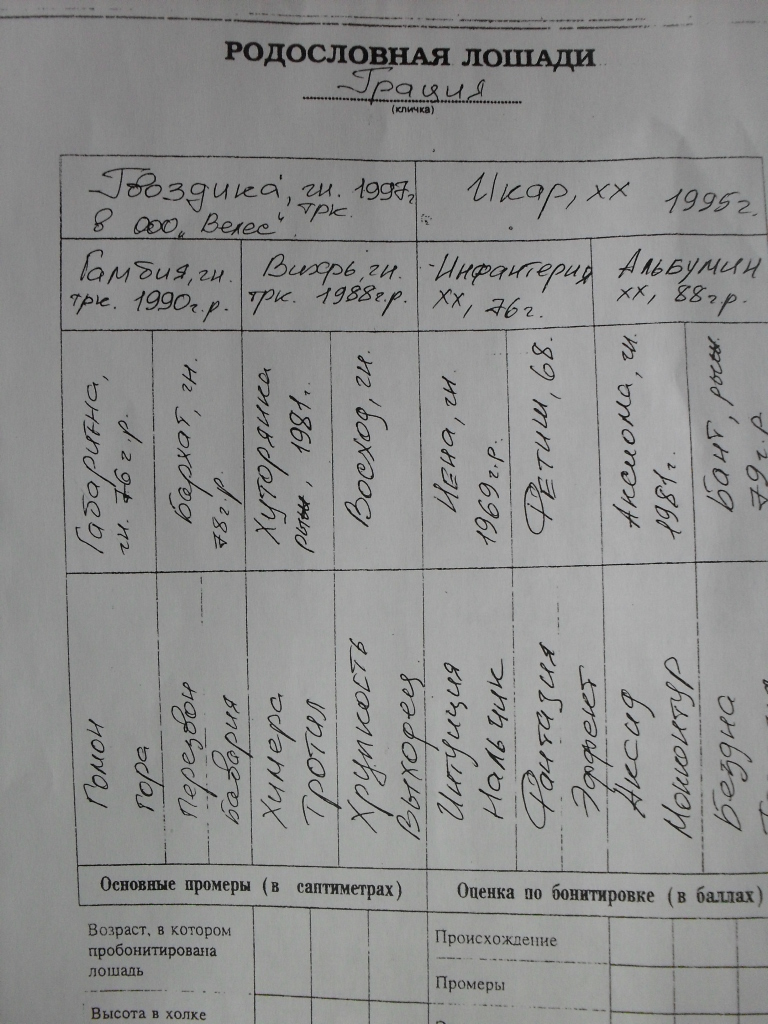 РОДОСЛОВНАЯ ЛОШАДИ
Грация
(кличка)
Гвоздика, гн. 1997г
в ООО „Велес“ трк.
Икар, хх 1995г.
Гамбия, гн.
трк. 1990г.р.
Вихрь, гн.
трк. 1988г.р.
Инфантерия
хх, 76г.
Альбумин
хх, 88г.р.
Габаритна,
гн. 76г.р.
Бархат, гн.
78г.р.
Хуторянка
рыж, 1981г.
Восход, гн.
Иена, гн.
1969г.р.
Фетиш, 68.
Аксиома, гн.
1981г.
Бант, рыж
79г.р
Гомон
Гора
Перезвон
Бавария
Химера
Тротил
Хрупкость
Выходец
Интуиция
Нальчик
Фантазия
Эффект
Аксид
Бездна
Основные промеры (в саптиметрах)
Оценка по бонитировке (в баллах)
Возраст, в котором
пробонитирована
лошадь
Высота в холке
Происхождение
Промеры